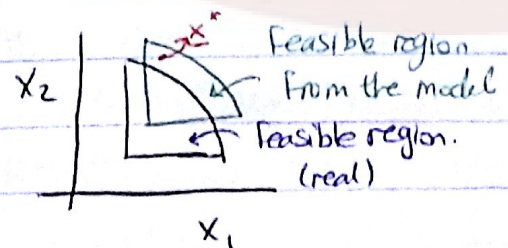 x*
Feasible region
X2
From the model
Feasible region.
(real)
X1